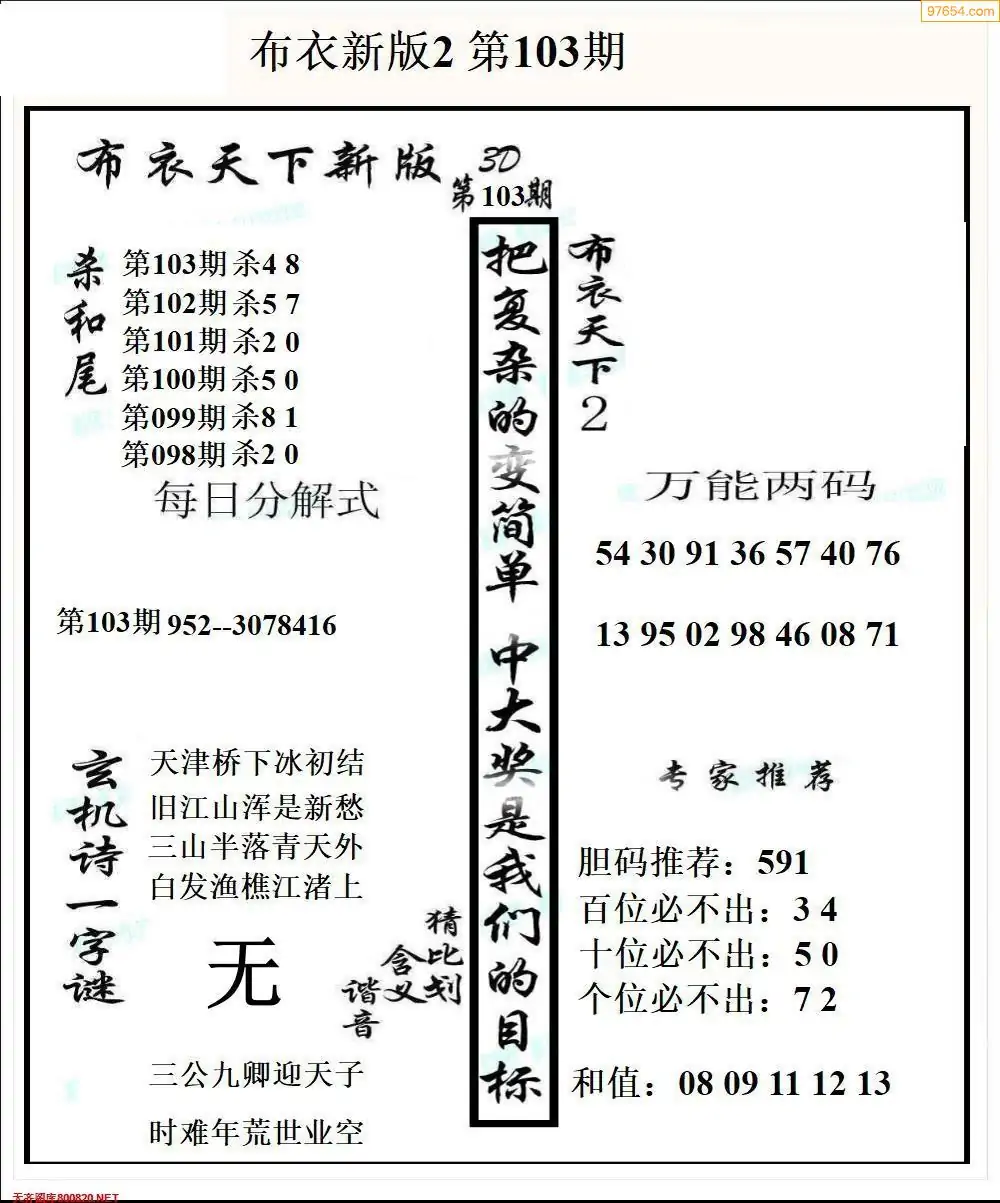 97654.com
布衣新版2 第103期
布衣天下新版 3D
第103期
杀和尾
第103期 杀4 8
第102期 杀5 7
第101期 杀2 0
第100期 杀5 0
第099期 杀8 1
第098期 杀2 0
每日分解式
第103期 952--3078416
玄机诗一字谜
天津桥下冰初结
旧江山浑是新愁
三山半落青天外
白发渔樵江渚上
无
猜比划
含义
谐音
三公九卿迎天子
时难年荒世业空
把复杂的变简单 中大奖是我们的目标
布衣天下2
万能两码
54 30 91 36 57 40 76
13 95 02 98 46 08 71
专家推荐
胆码推荐：591
百位必不出：3 4
十位必不出：5 0
个位必不出：7 2
和值：08 09 11 12 13
天齐图库800820.NET